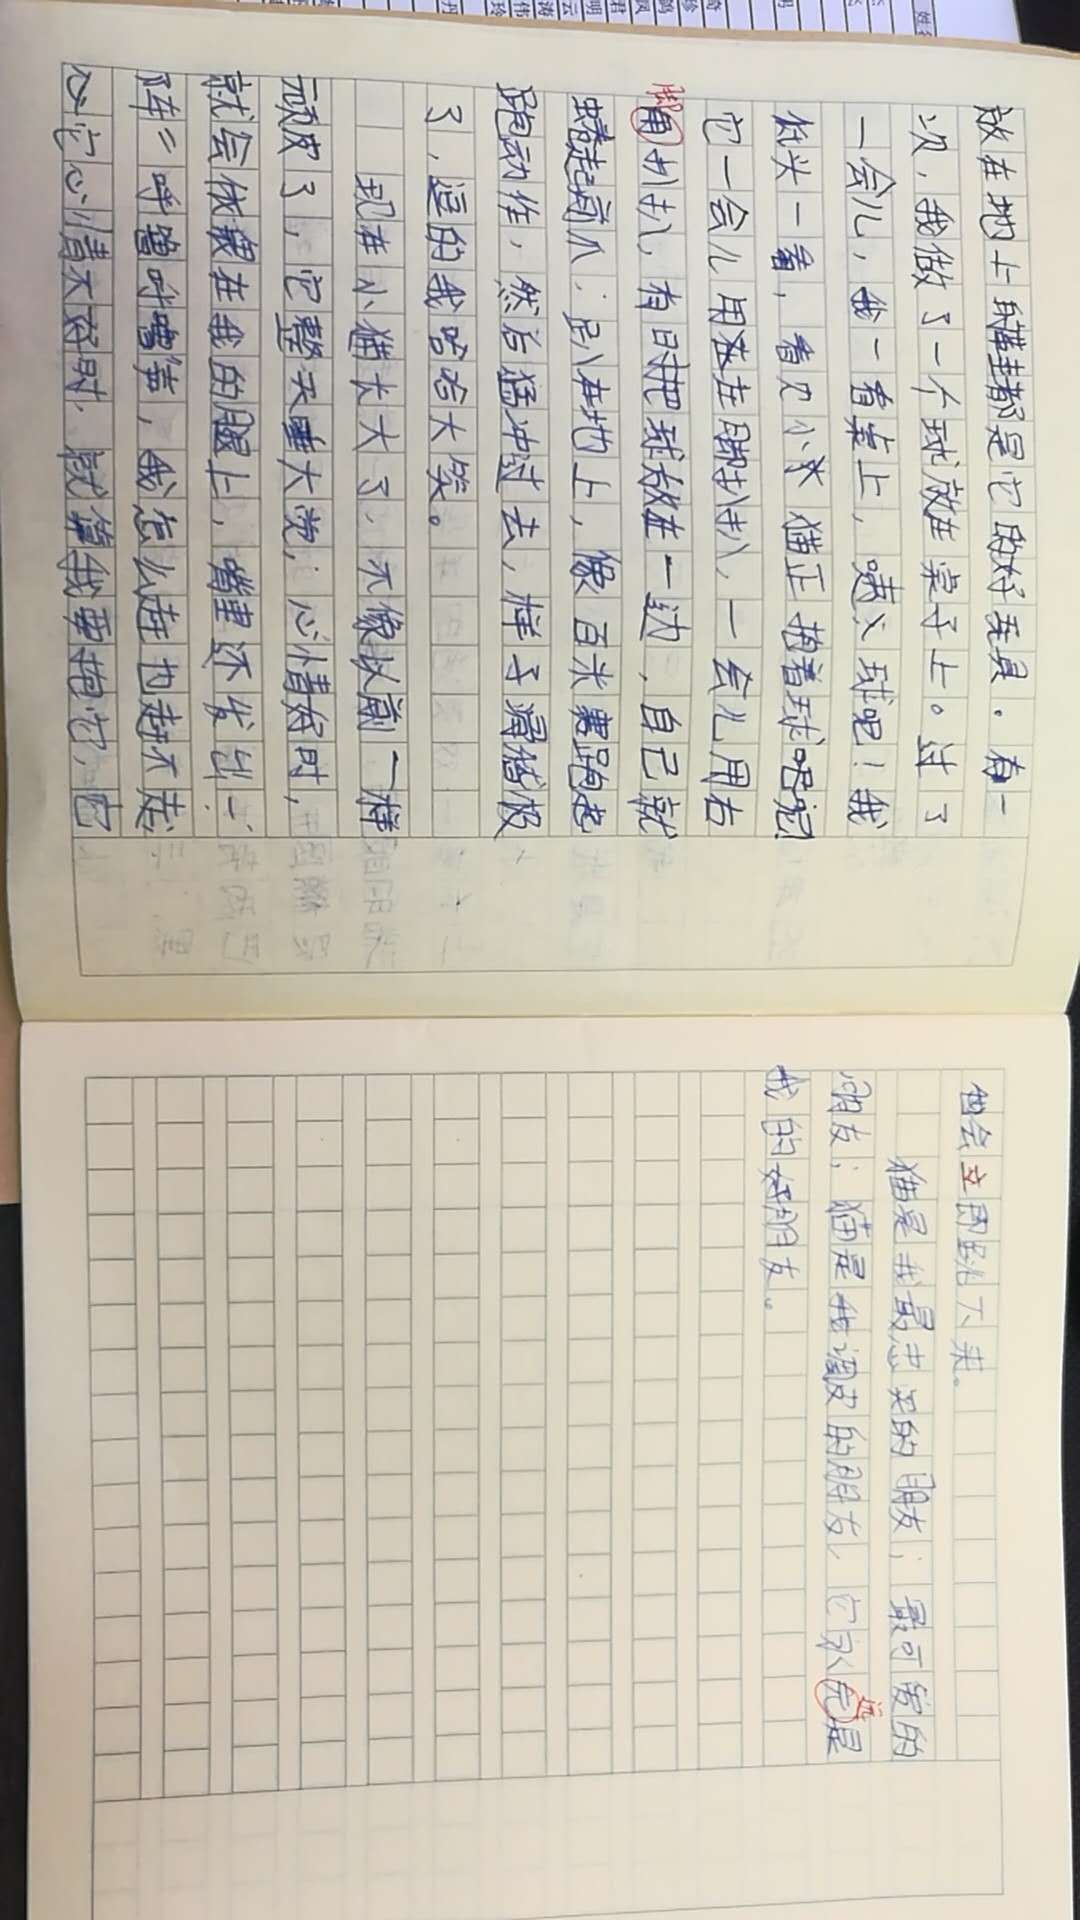 放在地上的罐都是它的好玩具．有一
次，我做了一个球放在桌子上。过了
一会儿，我一看桌上，咦？球呢！我
低头一看，看见小米猫正抱着球呢！
它一会儿用左脚扒扒，一会儿用右
脚
角扒扒，有时把球放在一边，自己就
蜷起前爪；趴在地上，像百米赛跑起
跑动作，然后猛冲过去，样子滑稽极
了，逗的我哈哈大笑。
现在小猫长大了，不像以前一样
顽皮了，它整天睡大觉，心情好时，
就会依偎在我的腿上，嘴里还发出一
阵阵呼噜呼噜声，我怎么赶也赶不走
它心情不好时，就算我要抱它，它
也会立即跳下来。
猫是我最忠实的朋友；最可爱的
朋友；猫是我调皮的朋友，它永
远
是
我的好朋友。